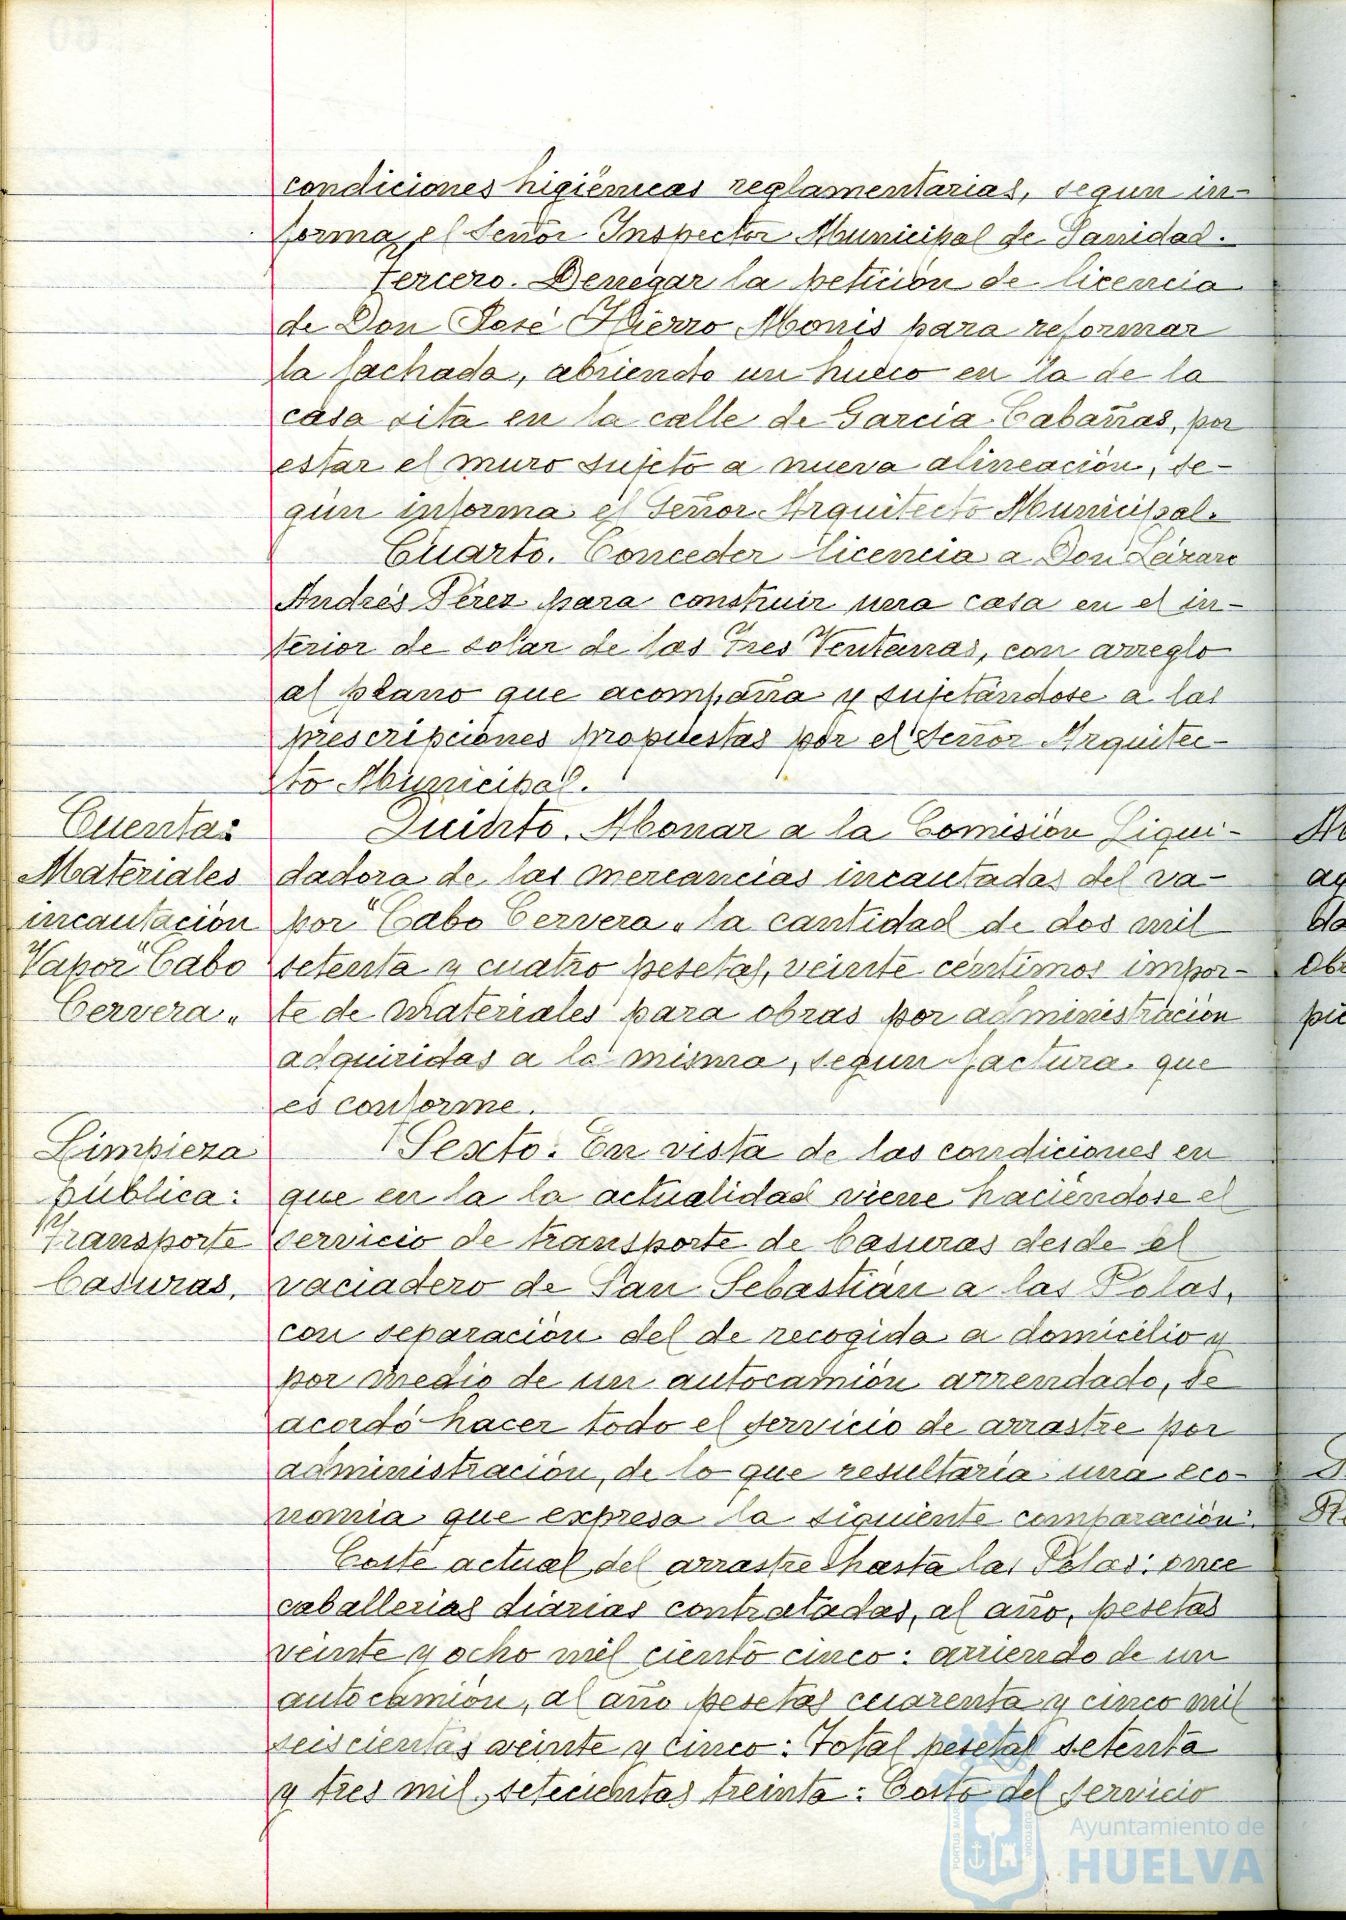 condiciones higiénicas reglamentarias, segun in-
forma el Señor Inspector Municipal de Sanidad.
Tercero. Denegar la petición de licencia
de Don José Hierro Monis para reformar
la fachada, abriendo un hueco en la de la
casa sita en la calle de García Cabañas, por
estar el muro sujeto a nueva alineación, se-
gún informa el Señor Arquitecto Municipal.
Cuarto. Conceder licencia a Don Lázaro
Andrés Pérez para construir una casa en el in-
terior de solar de las Tres Ventanas, con arreglo
al plano que acompaña y sujetándose a las
prescripciones propuestas por el Señor Arquitec-
to Municipal.
Cuenta:
Materiales
incautación
Vapor "Cabo
Cervera„
Quinto. Abonar a la Comisión Liqui-
dadora de las mercancías incautadas del va-
por "Cabo Cervera„ la cantidad de dos mil
setenta y cuatro pesetas, veinte céntimos impor-
te de materiales para obras por administración
adquiridas a la misma, segun factura que
es conforme.
Limpieza
pública:
Transporte
basuras.
Sexto. En vista de las condiciones en
que en la la actualidad viene haciéndose el
servicio de transporte de basuras desde el
vaciadero de San Sebastián a las Polas,
con separación del de recogida a domicilio y
por medio de un autocamión arrendado, se
acordó hacer todo el servicio de arrastre por
administración, de lo que resultaría una eco-
nomía que expresa la siguiente comparación:
Coste actual del arrastre hasta las Polas: once
caballerias diarias contratadas, al año, pesetas
veinte y ocho mil ciento cinco: arriendo de un
autocamión, al año pesetas cuarenta y cinco mil
seiscientas veinte y cinco: Total pesetas setenta
y tres mil, setecientas treinta: Costo del servicio
Ayuntamiento de
HUELVA